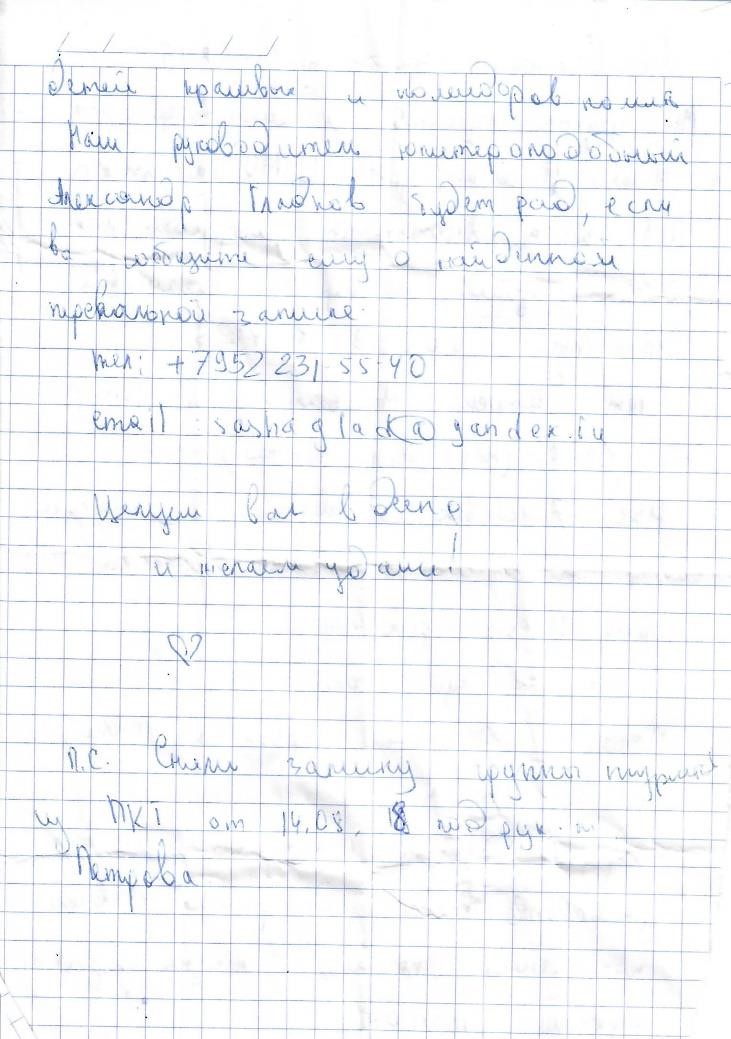 Детей красивых и помидоров
Наш руководитель юпитероподобный
Александр Гладков будет рад, если
вы сообщите ему о найденной
перевальной записке.
тел: +7952 231-55-40
email: sashaglack@yandex.ru
Целуем вас в десна
и желаем удачи!
П.С. Сняли записку группы туристов
из ПКТ от 14.08.18 под рук.
Петрова